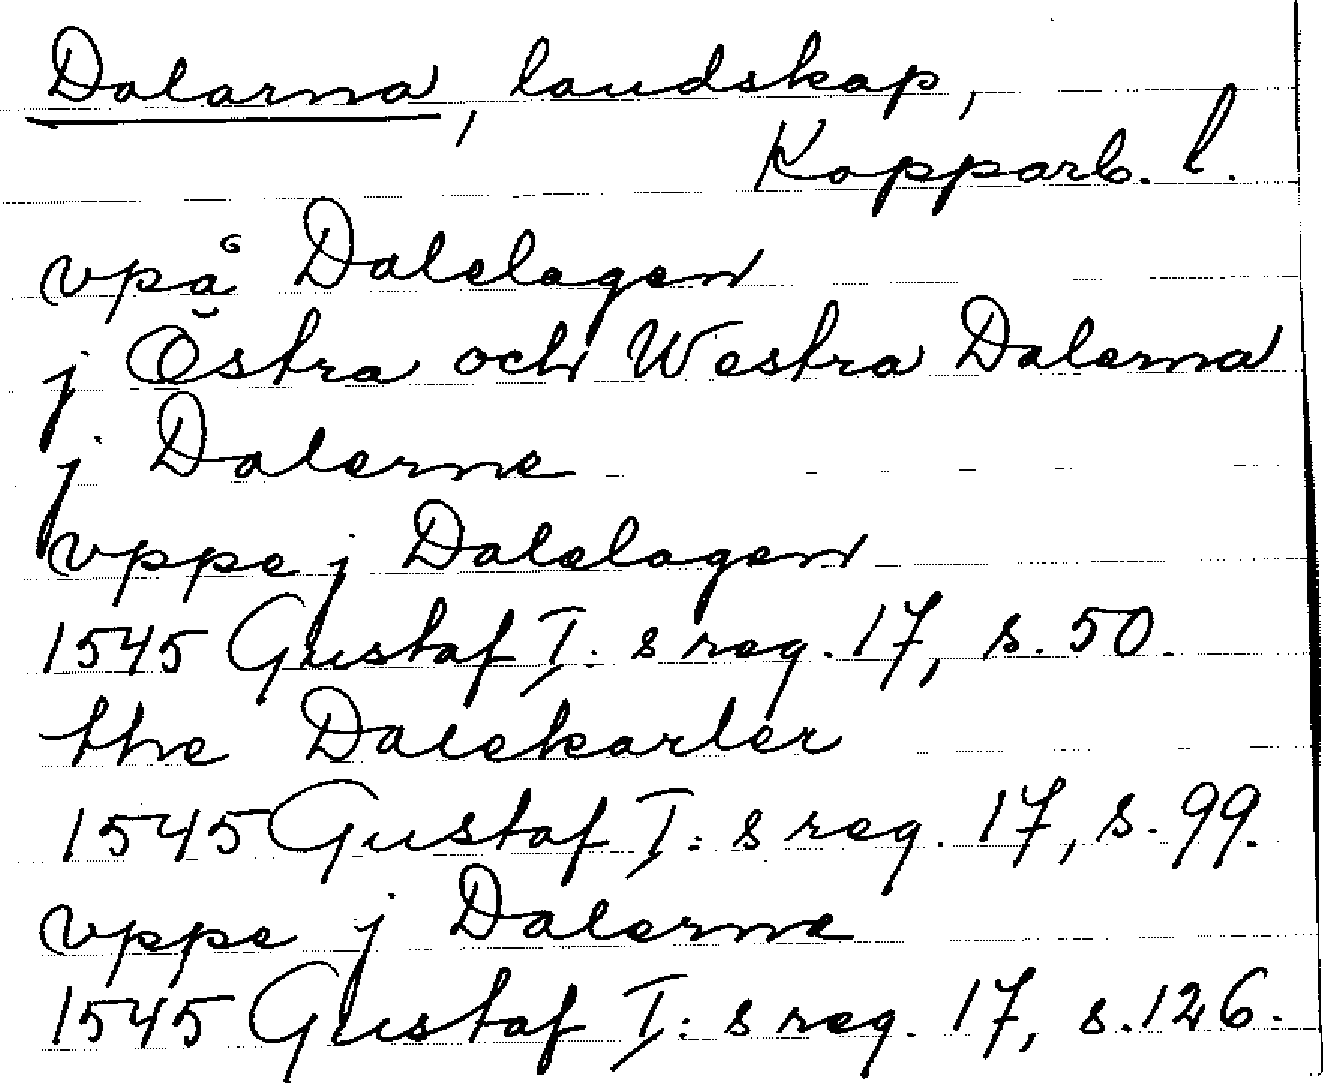 Dalarna, landskap,
Kopparb. l.
vpå Dalelagen
j Östra och Westra Dalerna
j Dalerne
vppe j Dalelagen
1545 Gustaf I:s reg. 17, s. 50.
the Dalekarler
1545 Gustaf I:s reg. 17, s. 99.
vppe j Dalerne
1545 Gustaf I:s reg. 17, s. 126.